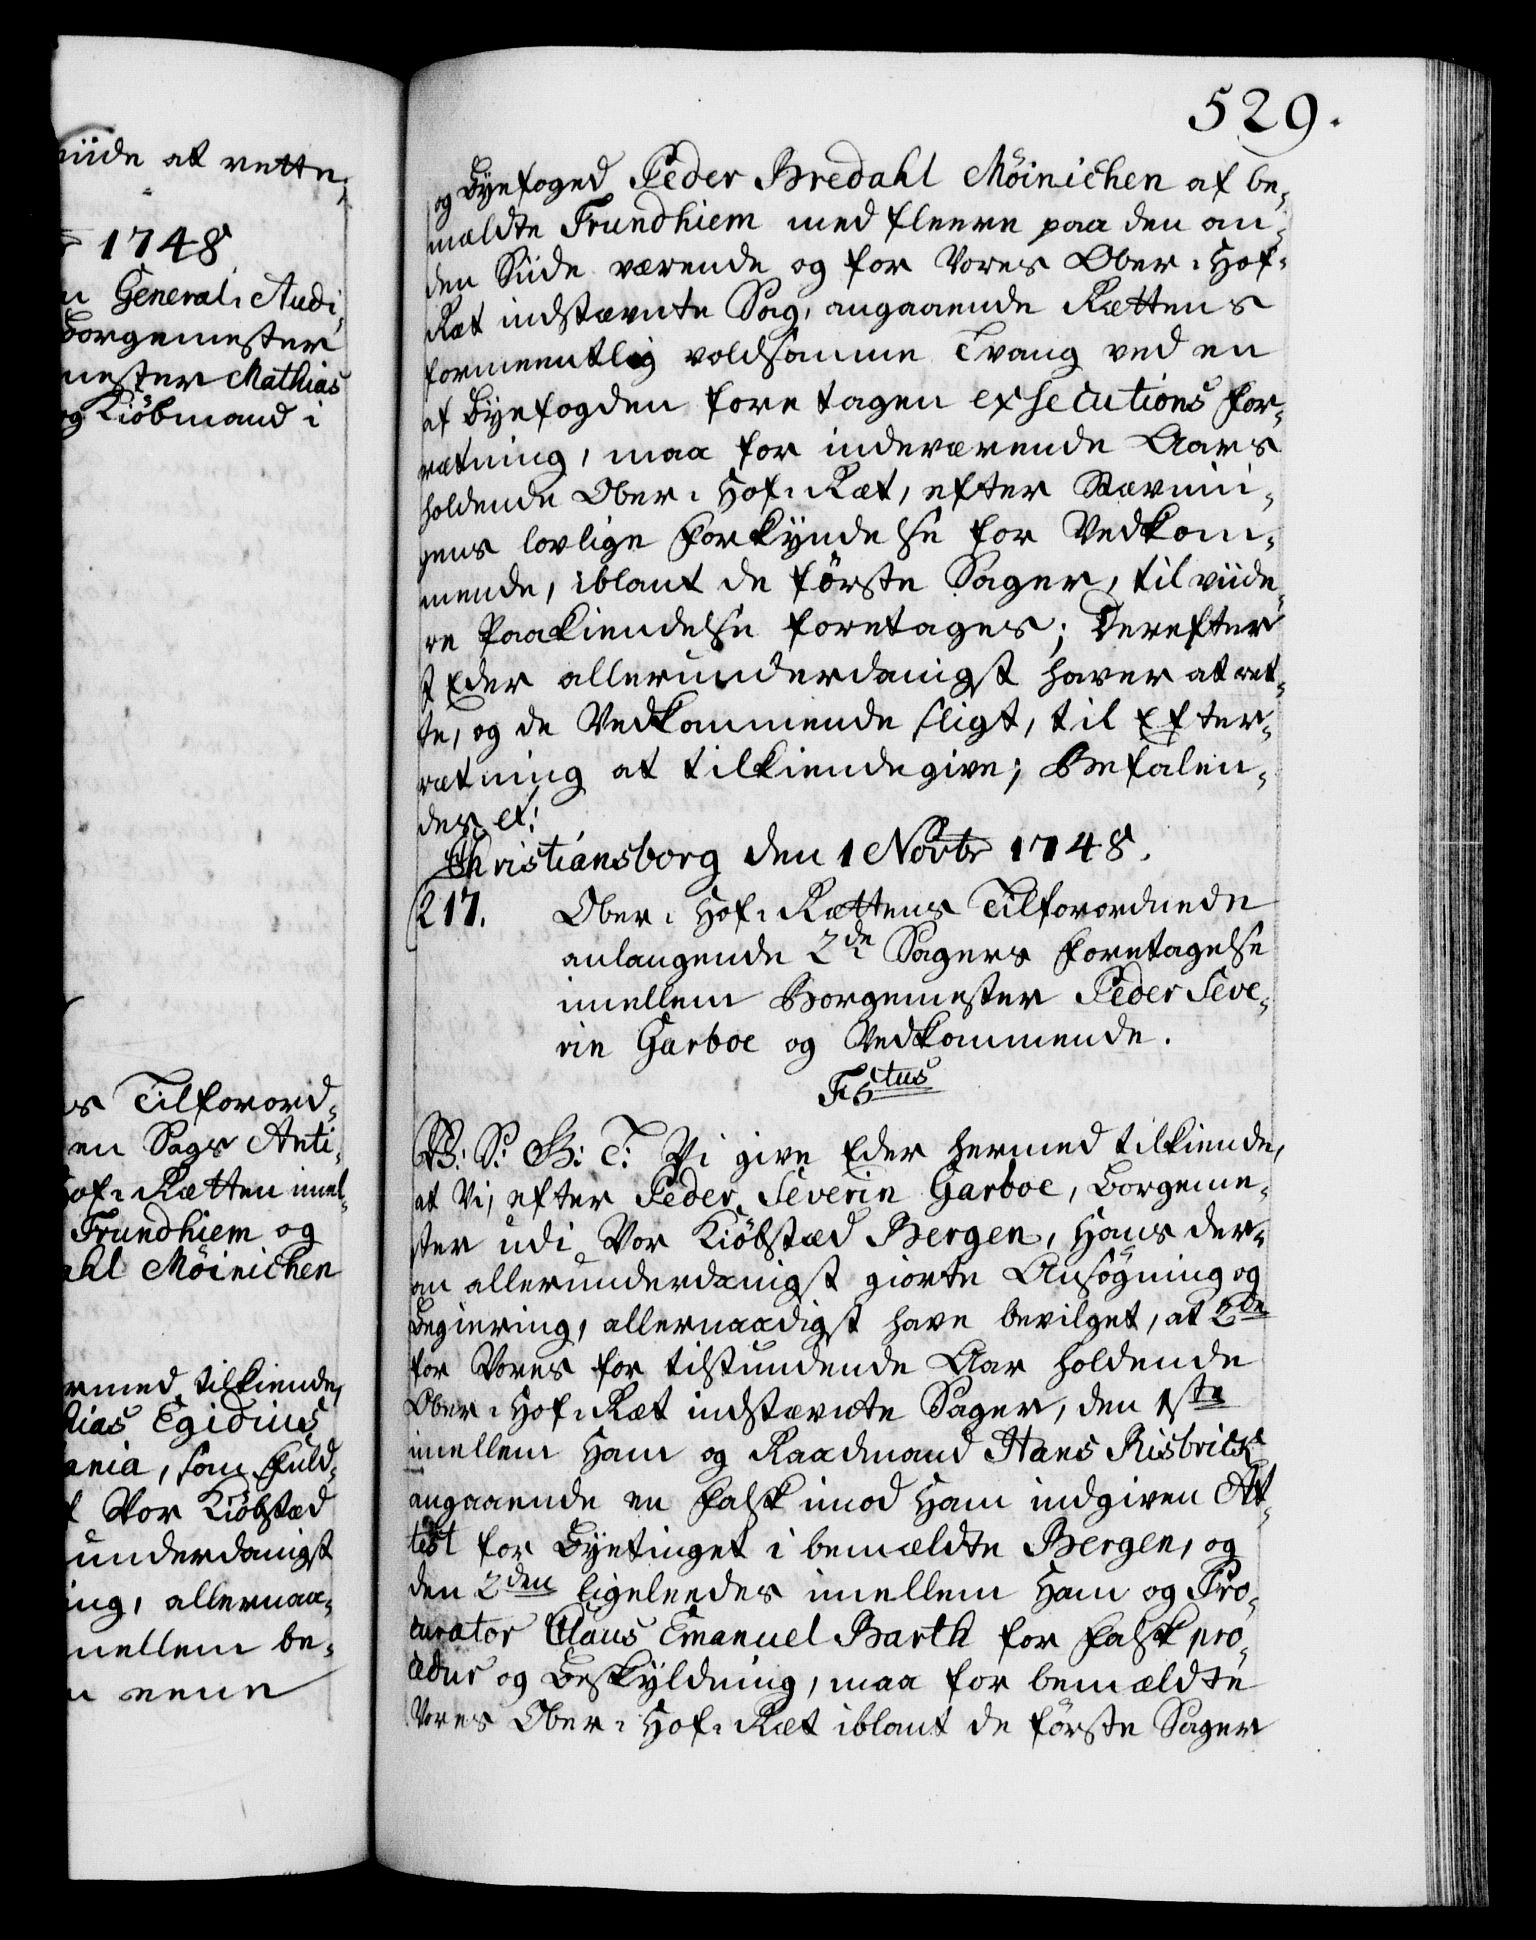 viide at rette,
1748
General-Audi-
Borgemester
mester Mathias
og Kiöbmand i
s Tilforord-
en Sags Anti-
Hof-Rætten imel-
Trundhiem og
ahl Möinichen
ermed tilkiende,
tias Egidius
ania, som Fuld-
Vor Kiöbstæd
underdanigst
ing, allernaa-
mellem be-
eene
529.
og Byefoged Peder Bredahl Möinichen af be-
mældte Trundhiem med fleere paa den an-
den Siide værende og for Vores Ober-Hof-
Ræt indstævnte Sag, angaaende Rættens
formeentlig voldsomme Tvang ved en
af Byefogden foretagen exsecutions For-
rætning, maa for indeværende Aars
holdende Ober-Hof-Ræt, efter Stævnin-
gens lovlige Forkyndelse for Vedkom-
mende, iblant de förste Sager, til viide-
re Paakiendelse foretages; Derefter
I Eder allerunderdanigst haver at ret-
te, og de Vedkommende sligt, til Efter-
rætning at tilkiendegive; Befalen-
des et:
Christiansborg den 1 Novbr 1748.
217. Ober-Hof-Rættens Tilforordnede
anlangende 2de Sagers Foretagelse
imellem Borgemester Peder Seve-
rin Garboe og Vedkommende.
F 5tus
V: S: G: T: Vi give Eder hermed tilkiende,
at Vi, efter Peder Severin Garboe, Borgeme-
ster udi Vor Kiöbstæd Bergen, Hans der-
om allerunderdanigst giorte Ansögning og
Begiering, allernaadigst have bevilget, at 2de
for Vores for tilstundende Aar holdende
Ober-Hof-Ræt indstævnte Sager, den 1ste
imellem Ham og Raadmand Hans Risbrick
angaaende en falsk imod Ham indgiven At-
test for Byetinget i bemældte Bergen, og
den 2den ligeleedes imellem Ham og Pro-
curator Claus Emanuel Barth for falsk pro-
cedur og Beskyldning, maa for bemældte
Vores Ober-Hof-Ræt iblant de förste Sager